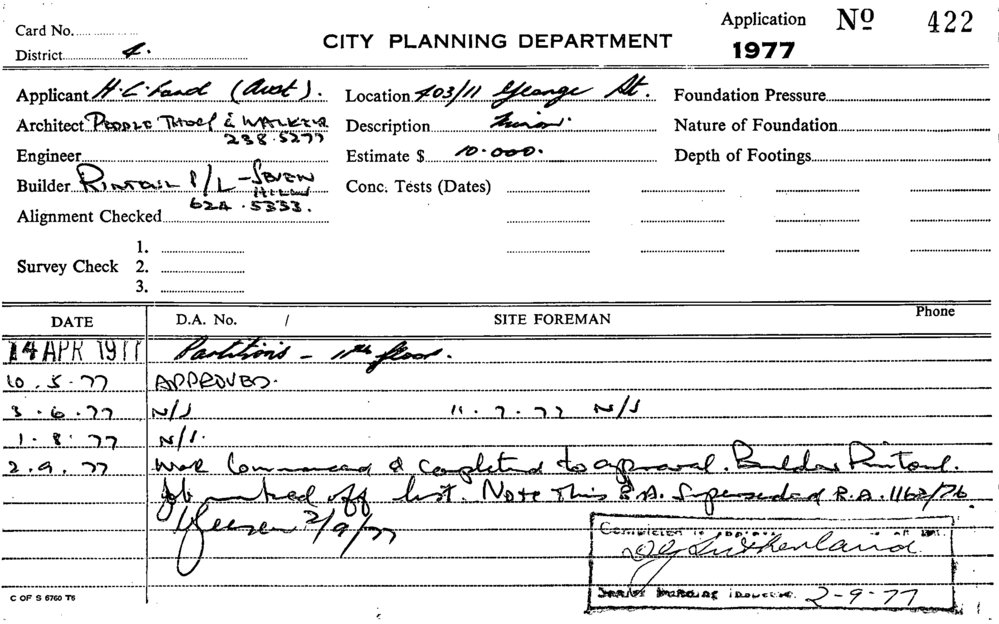 Card No.
District 4.
CITY PLANNING DEPARTMENT
Application Nº 422
1977
Applicant H.C. (Aust).
Location 403/11 George St.
Foundation Pressure
Architect PEDDLE THORP & WALKER
238.5277
Description Minor.
Nature of Foundation
Engineer
Estimate $ 10.000.
Depth of Footings
Builder RINTOUL P/L - SEVEN HILLS
624.5333.
Conc. Tests (Dates)
Alignment Checked
Survey Check
1.
2.
3.
DATE D.A. No. / SITE FOREMAN Phone
14 APR 1977 Partitions - 11th floor.
10.5.77 APPROVED.
3.6.77 N/S 11.7.77 N/S
1.8.77 N/S.
2.9.77 Work Commenced & Completed to approval. Builder Rintoul.
Job marked off list. Note This B.A. Superseded B.A. 1162/76
2/9/77
COMPLETED
Sutherland
2-9-77
C OF S 6760 T6